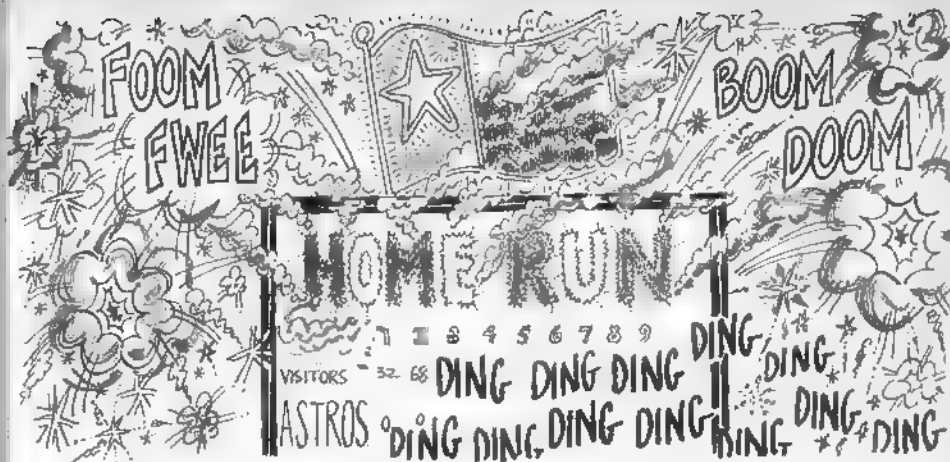 FOOM
FWEE
BOOM
DOOM
HOME RUN
1 2 3 4 5 6 7 8 9
DING
DING
VISITORS 32 68 DING DING DING
ASTROS 0 0 DING DING DING DING
DING
DING
DING